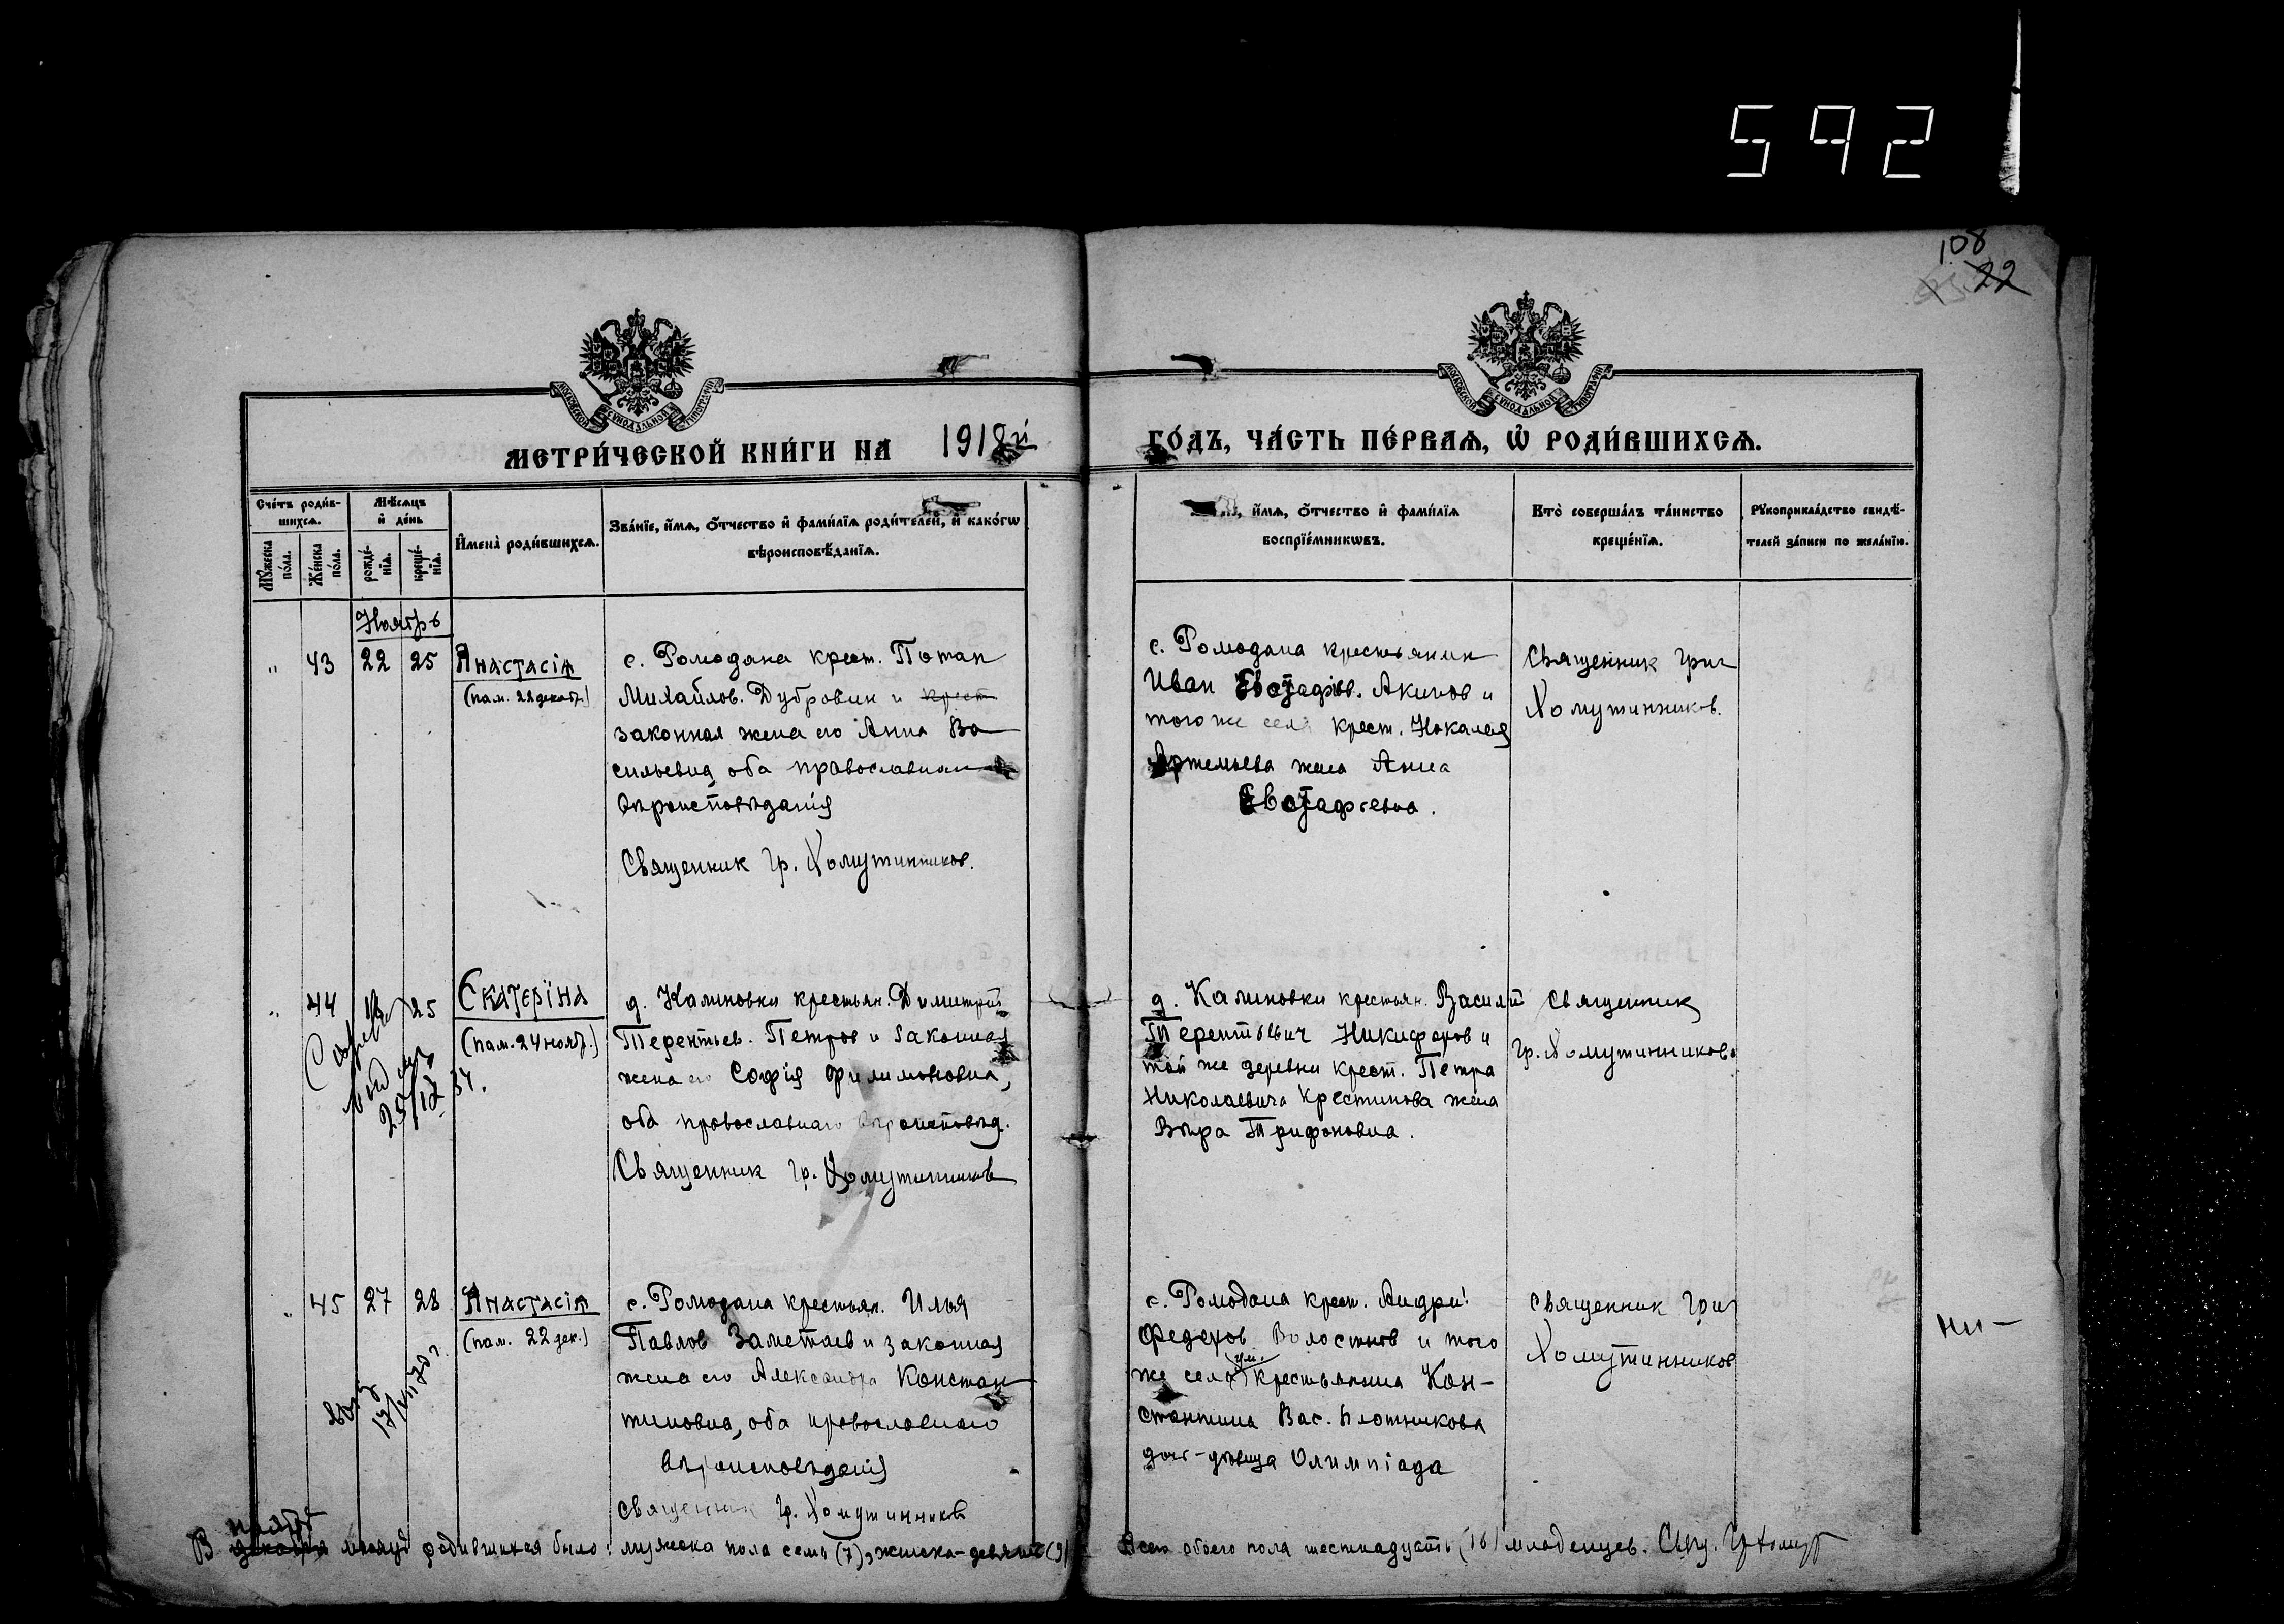 592
108
22
МОСКОВСКОЙ СѴНОДАЛЬНОЙ ТИПОГРАФІИ
МОСКОВСКОЙ СѴНОДАЛЬНОЙ ТИПОГРАФІИ
МЕТРИ́ЧЕСКОЙ КНИ́ГИ НА 1918й
ГО́ДЪ, ЧА́СТЬ ПЕ́РВАѦ, Ѡ҆ РОДИ́ВШИХСѦ.
Сче́тъ роди́в-
шихсѧ.
Мѣ́сѧцъ
и҆ де́нь
Мꙋ́жеска по́ла.
Же́нска по́ла.
рожде́-
нїѧ.
креще́-
нїѧ.
И҆мена̀ роди́вшихсѧ.
Зва́нїе, и҆́мѧ, ѻ҆́тчество и҆ фами́лїѧ роди́телей, и҆ како́гѡ
вѣроисповѣ́данїѧ.
и҆́мѧ, ѻ҆́тчество и҆ фами́лїѧ
воспрїе́мникѡвъ.
Кто̀ соверша́лъ та́инство
креще́нїѧ.
Рꙋкоприкла́дство свидѣ́-
телей за́писи по жела́нїю.
Ноябрь
" 43 22 25 Анастасія
(пам. 22 декабр.)
с. Ромодана крест. Потап
Михайлов. Дубровин и крест
законная жена его Анна Ва
сильевна оба православнаго
вѣроисповѣданія
Священник Гр. Хомутинников.
с. Ромодана крестьянин
Иван Евстафіев. Акимов и
того же села крест. Николая
Артемьева жена Анна
Евстафьевна.
Священник Григ
Хомутинников.
" 44 25 Екатерїна
(пам. 24 ноябр.)
д. Калиновки крестьян. Димитрій
Терентьев. Петров и законная
жена его Софія Филимоновна,
оба православнаго вѣроисповѣд.
Священник Гр. Хомутинников
д. Калиновки крестьян. Василій
Терентьевич Никифоров и
той же деревни крест. Петра
Николаевича Крестинова жена
Вѣра Трифоновна.
Священник
Гр. Хомутинников
" 45 27 28 Анастасія
(пам. 22 дек.)
с. Ромодана крестьян. Илья
Павлов Заметаев и законная
жена его Александра Констан
тиновна, оба православнаго
вѣроисповѣданія
Священник Гр. Хомутинников
с. Ромодана крест. Андрей
Федоров Волостнов и того
же села ум. крестьянина Кон-
стантина Вас. Плотникова
дочь-дѣвица Олимпіада
Священник Григ
Хомутинников
В ноябрѣ декабрѣ мѣсяцѣ родившихся было: мужеска пола семь (7), женска - девять (9)
Всего обоего пола шестнадцать (16) младенцев. Свящ. Гр Хомут